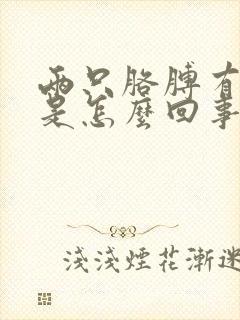 两只胳膊有
是怎麼回事
淺淺煙花漸迷